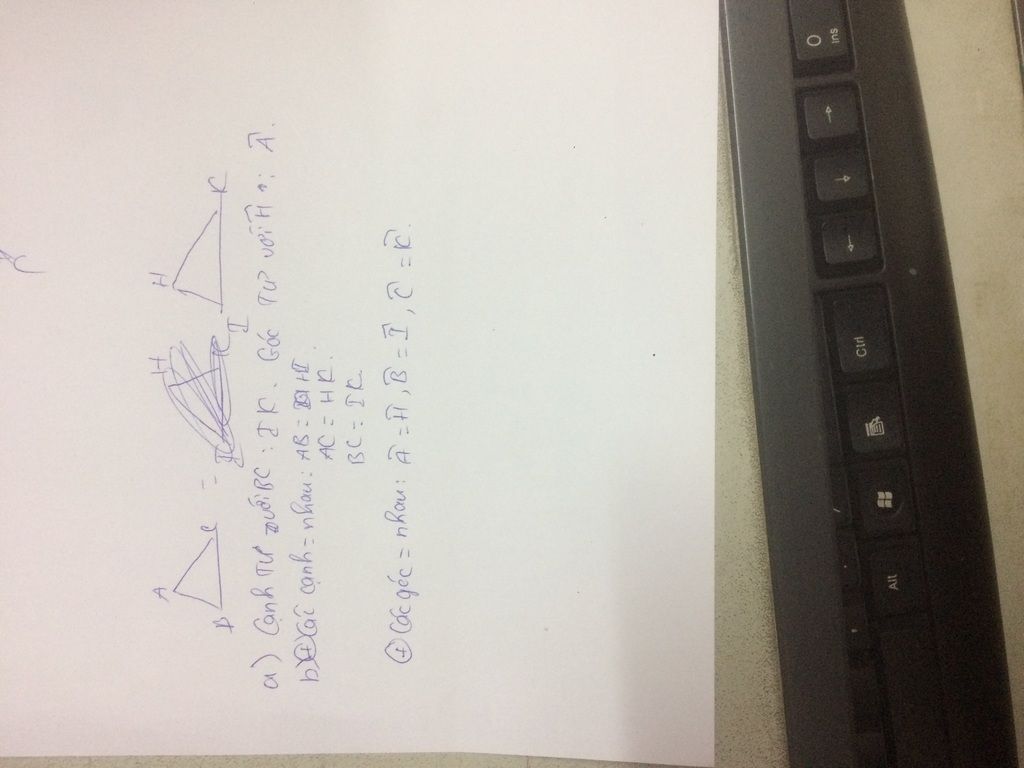 A
H
H
B
C
=
I
K
I
K
a) Cạnh TƯ với BC : IK. Góc TƯ với Ĥ : Â.
b) + Các cạnh = nhau: AB = HI
AC = HK.
BC = IK.
+ Các góc = nhau: Â = Ĥ, B̂ = Î, Ĉ = K̂.
Alt
Ctrl
←
↓
→
O
ins